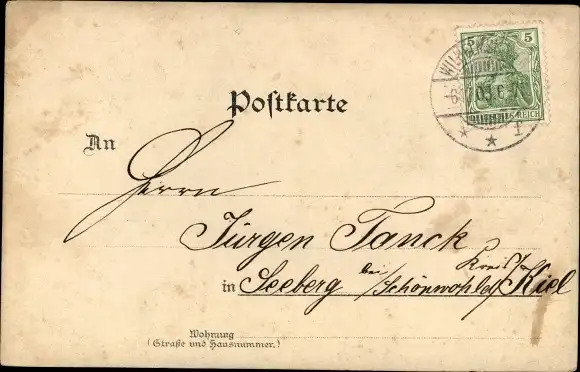 5 5
DEUTSCHES REICH
WILH
6. 03. 6-7
f
Postkarte
An
Herrn
Jürgen Tanck
in Seeberg bei Schönwohld Kreis Kiel
Wohnung
(Straße und Hausnummer.)